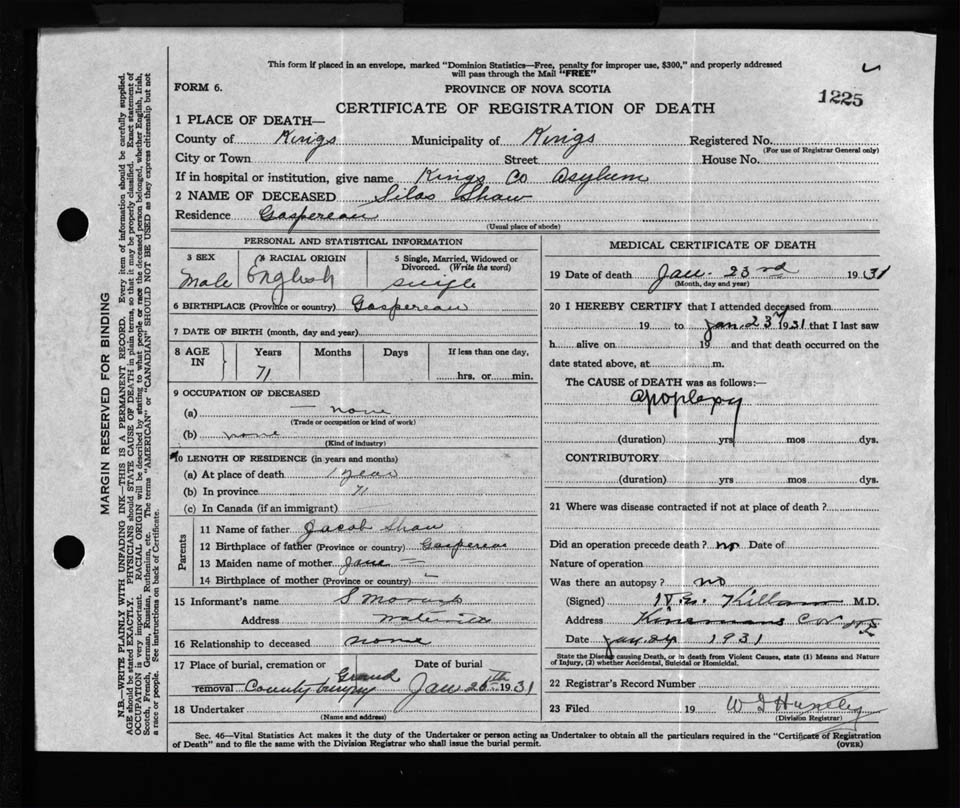 This form if placed in an envelope, marked "Dominion Statistics—Free, penalty for improper use, $300," and properly addressed
will pass through the Mail "FREE"
FORM 6.
PROVINCE OF NOVA SCOTIA
1225
CERTIFICATE OF REGISTRATION OF DEATH
1 PLACE OF DEATH—
County of Kings Municipality of Kings Registered No.
(For use of Registrar General only)
City or Town Street House No.
If in hospital or institution, give name Kings Co Asylum
2 NAME OF DECEASED Silas Shaw
Residence Gaspereau
(Usual place of abode)
PERSONAL AND STATISTICAL INFORMATION
3 SEX 4 RACIAL ORIGIN 5 Single, Married, Widowed or
Divorced. (Write the word)
Male English single
6 BIRTHPLACE (Province or country) Gaspereau
7 DATE OF BIRTH (month, day and year)
8 AGE IN Years Months Days If less than one day,
71 hrs. or min.
9 OCCUPATION OF DECEASED
(a) — none
(Trade or occupation or kind of work)
(b) none
(Kind of industry)
10 LENGTH OF RESIDENCE (in years and months)
(a) At place of death 1 year
(b) In province 71
(c) In Canada (if an immigrant)
Parents
11 Name of father Jacob Shaw
12 Birthplace of father (Province or country) Gaspereau
13 Maiden name of mother Jane —
14 Birthplace of mother (Province or country) -
15 Informant's name S
Address Waterville
16 Relationship to deceased none
17 Place of burial, cremation or Date of burial
removal County Ground Jan 26th 1931
18 Undertaker
(Name and address)
MEDICAL CERTIFICATE OF DEATH
19 Date of death Jan. 23rd 1931
(Month, day and year)
20 I HEREBY CERTIFY that I attended deceased from
19 to Jan 23 1931 that I last saw
h alive on 19 and that death occurred on the
date stated above, at m.
The CAUSE of DEATH was as follows:—
Apoplexy
(duration) yrs mos dys.
CONTRIBUTORY
(duration) yrs mos dys.
21 Where was disease contracted if not at place of death?
Did an operation precede death? no Date of
Nature of operation
Was there an autopsy? no
(Signed) Killam M.D.
Address Kinsmans Cor N.S
Date Jan. 24 1931
State the Disease causing Death, or in death from Violent Causes, state (1) Means and Nature
of Injury, (2) whether Accidental, Suicidal or Homicidal.
22 Registrar's Record Number
23 Filed 19 W G Huntley
(Division Registrar)
Sec. 46—Vital Statistics Act makes it the duty of the Undertaker or person acting as Undertaker to obtain all the particulars required in the "Certificate of Registration
of Death" and to file the same with the Division Registrar who shall issue the burial permit.
(OVER)
MARGIN RESERVED FOR BINDING
N.B.—WRITE PLAINLY WITH UNFADING INK—THIS IS A PERMANENT RECORD. Every item of information should be carefully supplied.
AGE should be stated EXACTLY. PHYSICIANS should STATE CAUSE OF DEATH in plain terms, so that it may be properly classified. Exact statement of
OCCUPATION is very important. RACIAL ORIGIN will be described by stating to what people or race the deceased person belonged, whether English, Irish,
Scotch, French, German, Russian, Ruthenian, etc. The terms "AMERICAN" or "CANADIAN" SHOULD NOT BE USED as they express citizenship but not
a race or people. See instructions on back of Certificate.